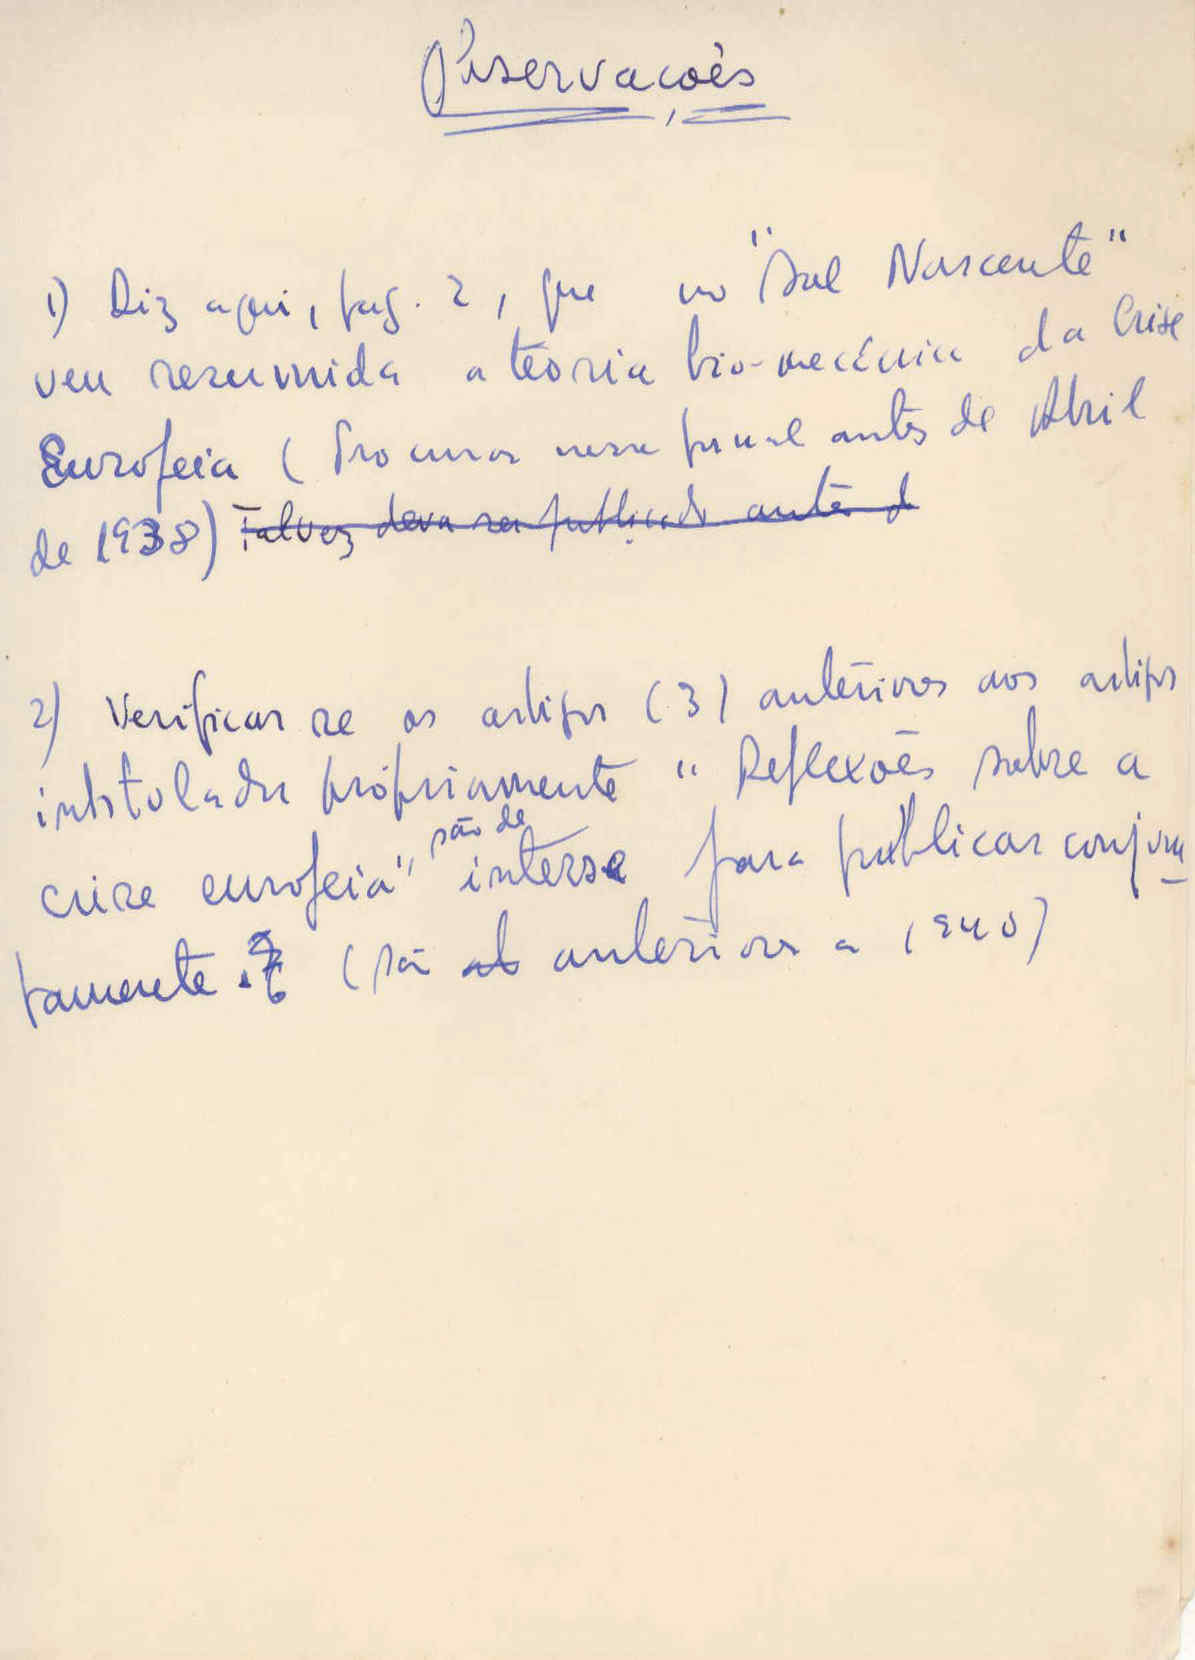 Observações
1) Diz aqui, pag. 2, que no "Sol Nascente"
vem resumida a teoria bio-mecânica da Crise
Europeia (Procurar nesse jornal antes de Abril
de 1938) Talvez deva ser publicado antes d
2) Verificar se os artigos (3) anteriores aos artigos
intitulados propriamente "Reflexões sobre a
crise europeia", são de interesse para publicar conjun
tamente. (são anteriores a 1940)